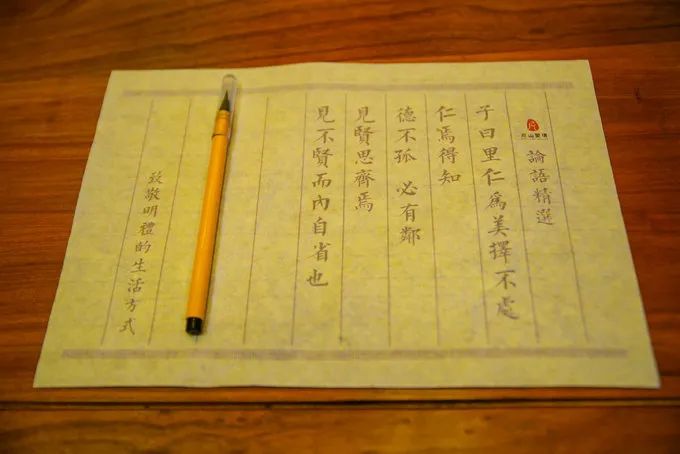 論語精選
子曰里仁為美擇不處
仁焉得知
德不孤 必有鄰
見賢思齊焉
見不賢而內自省也
致敬明禮的生活方式